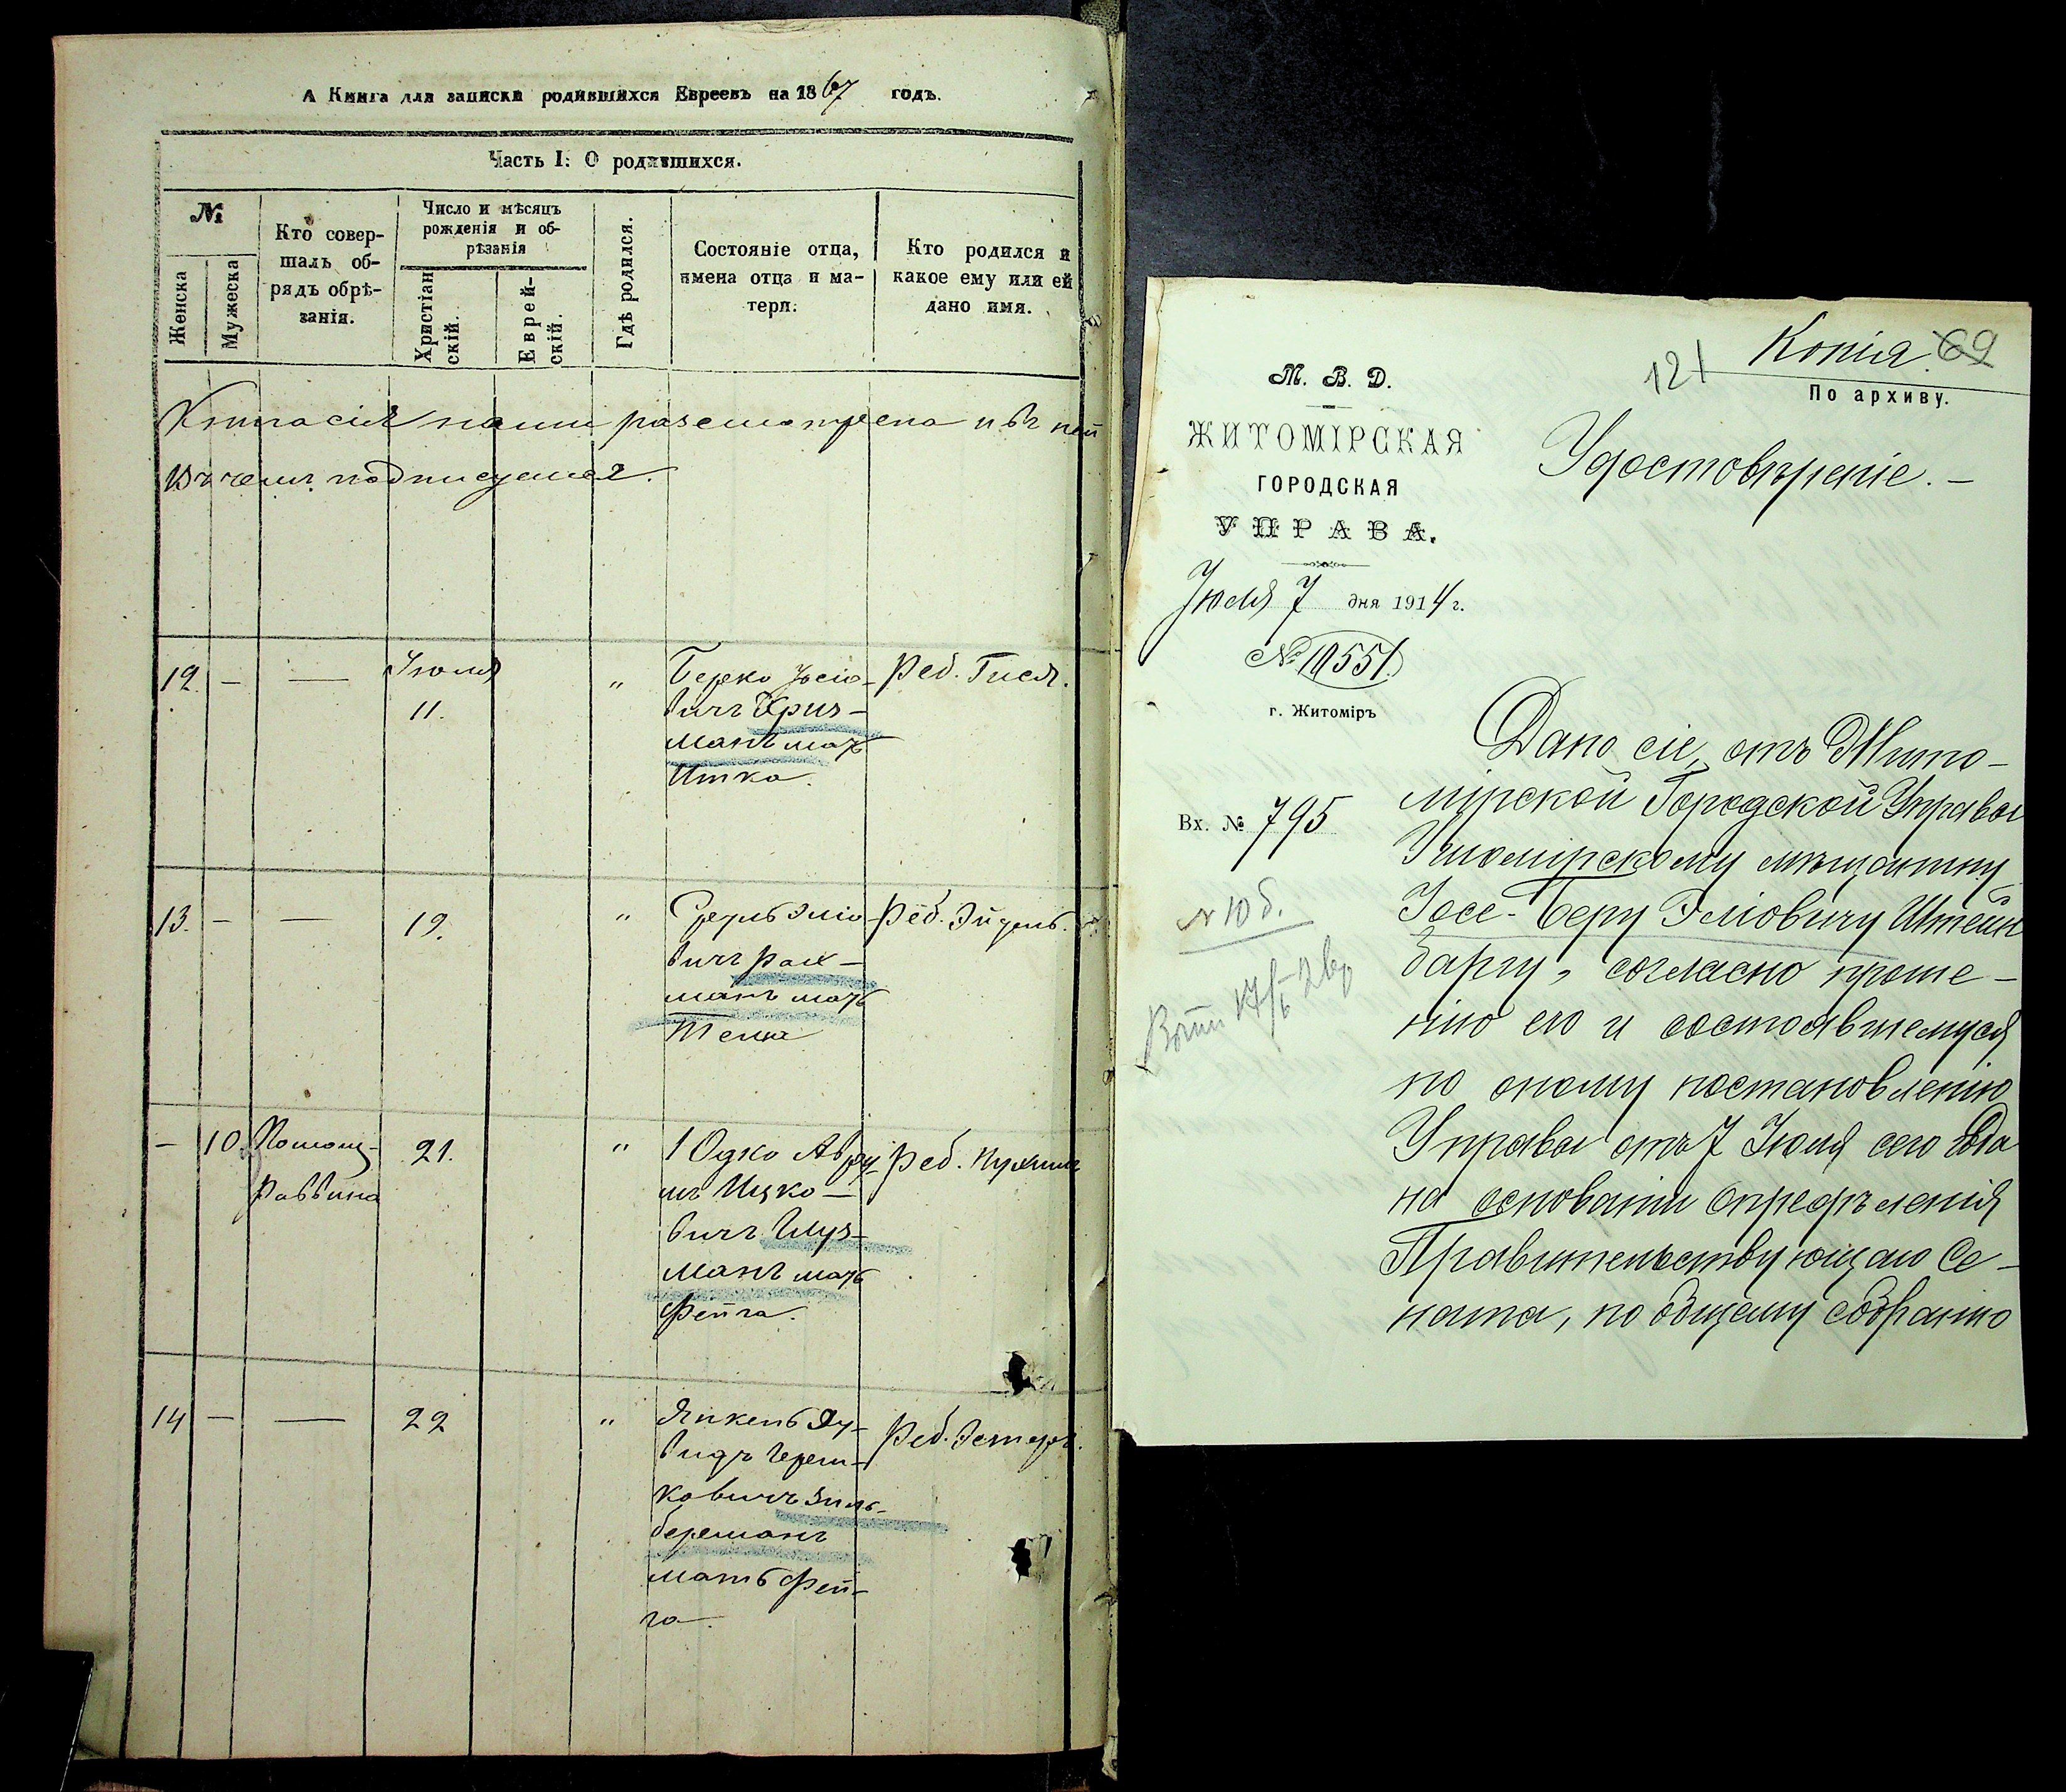 А Книга для записки родившихся Евреевъ на 1867 годъ.
Часть I: О родившихся.
№
Женска
Мужеска
Кто совер-
шалъ об-
рядъ обрѣ-
занія.
Число и мѣсяцъ
рожденія и об-
рѣзанія
Христіан
скій.
Еврей-
скій.
Гдѣ родился.
Состояніе отца,
имена отца и ма-
тери.
Кто родился и
какое ему или ей
дано имя.
Книга сія нами разсмотрена и въ ней
Въ чемъ подписуемся.
12. — — Іюля
11.
" Берко Іосіо-
вичъ Криз-
манъ мать
Итка.
Реб. Гися.
13. — — 19. "
Эліо-
вичъ Рах-
манъ мать
Реб. Эйдель.
— 10. Помощ-
Раввина
21. " Юдко Авру-
мъ Ицко-
вичъ Шуз-
манъ мать
Фейга.
Реб.
14 — — 22 " Янкель Ду-
видъ Герш-
ковичъ Зиль-
берманъ
мать Фей-
га.
Реб. Эстеръ.
М. В. Д.
ЖИТОМІРСКАЯ
ГОРОДСКАЯ
УПРАВА.
Іюля 7 дня 1914 г.
№ 10551.
г. Житоміръ
Вх. № 795
№ 10 б.
121 Копія. 69
По архиву.
Удостовѣреніе. —
Дано сіе, отъ Жито-
мірской Городской Управы
Житомірскому мѣщанину
Іосе-Беру Эліовичу Штейн
баргу, согласно проше-
нію его и состоявшемуся
по оному постановленію
Управы отъ 7 Іюля сего года
на основаніи опредѣленія
Правительствующаго Се-
ната, по общему собранію